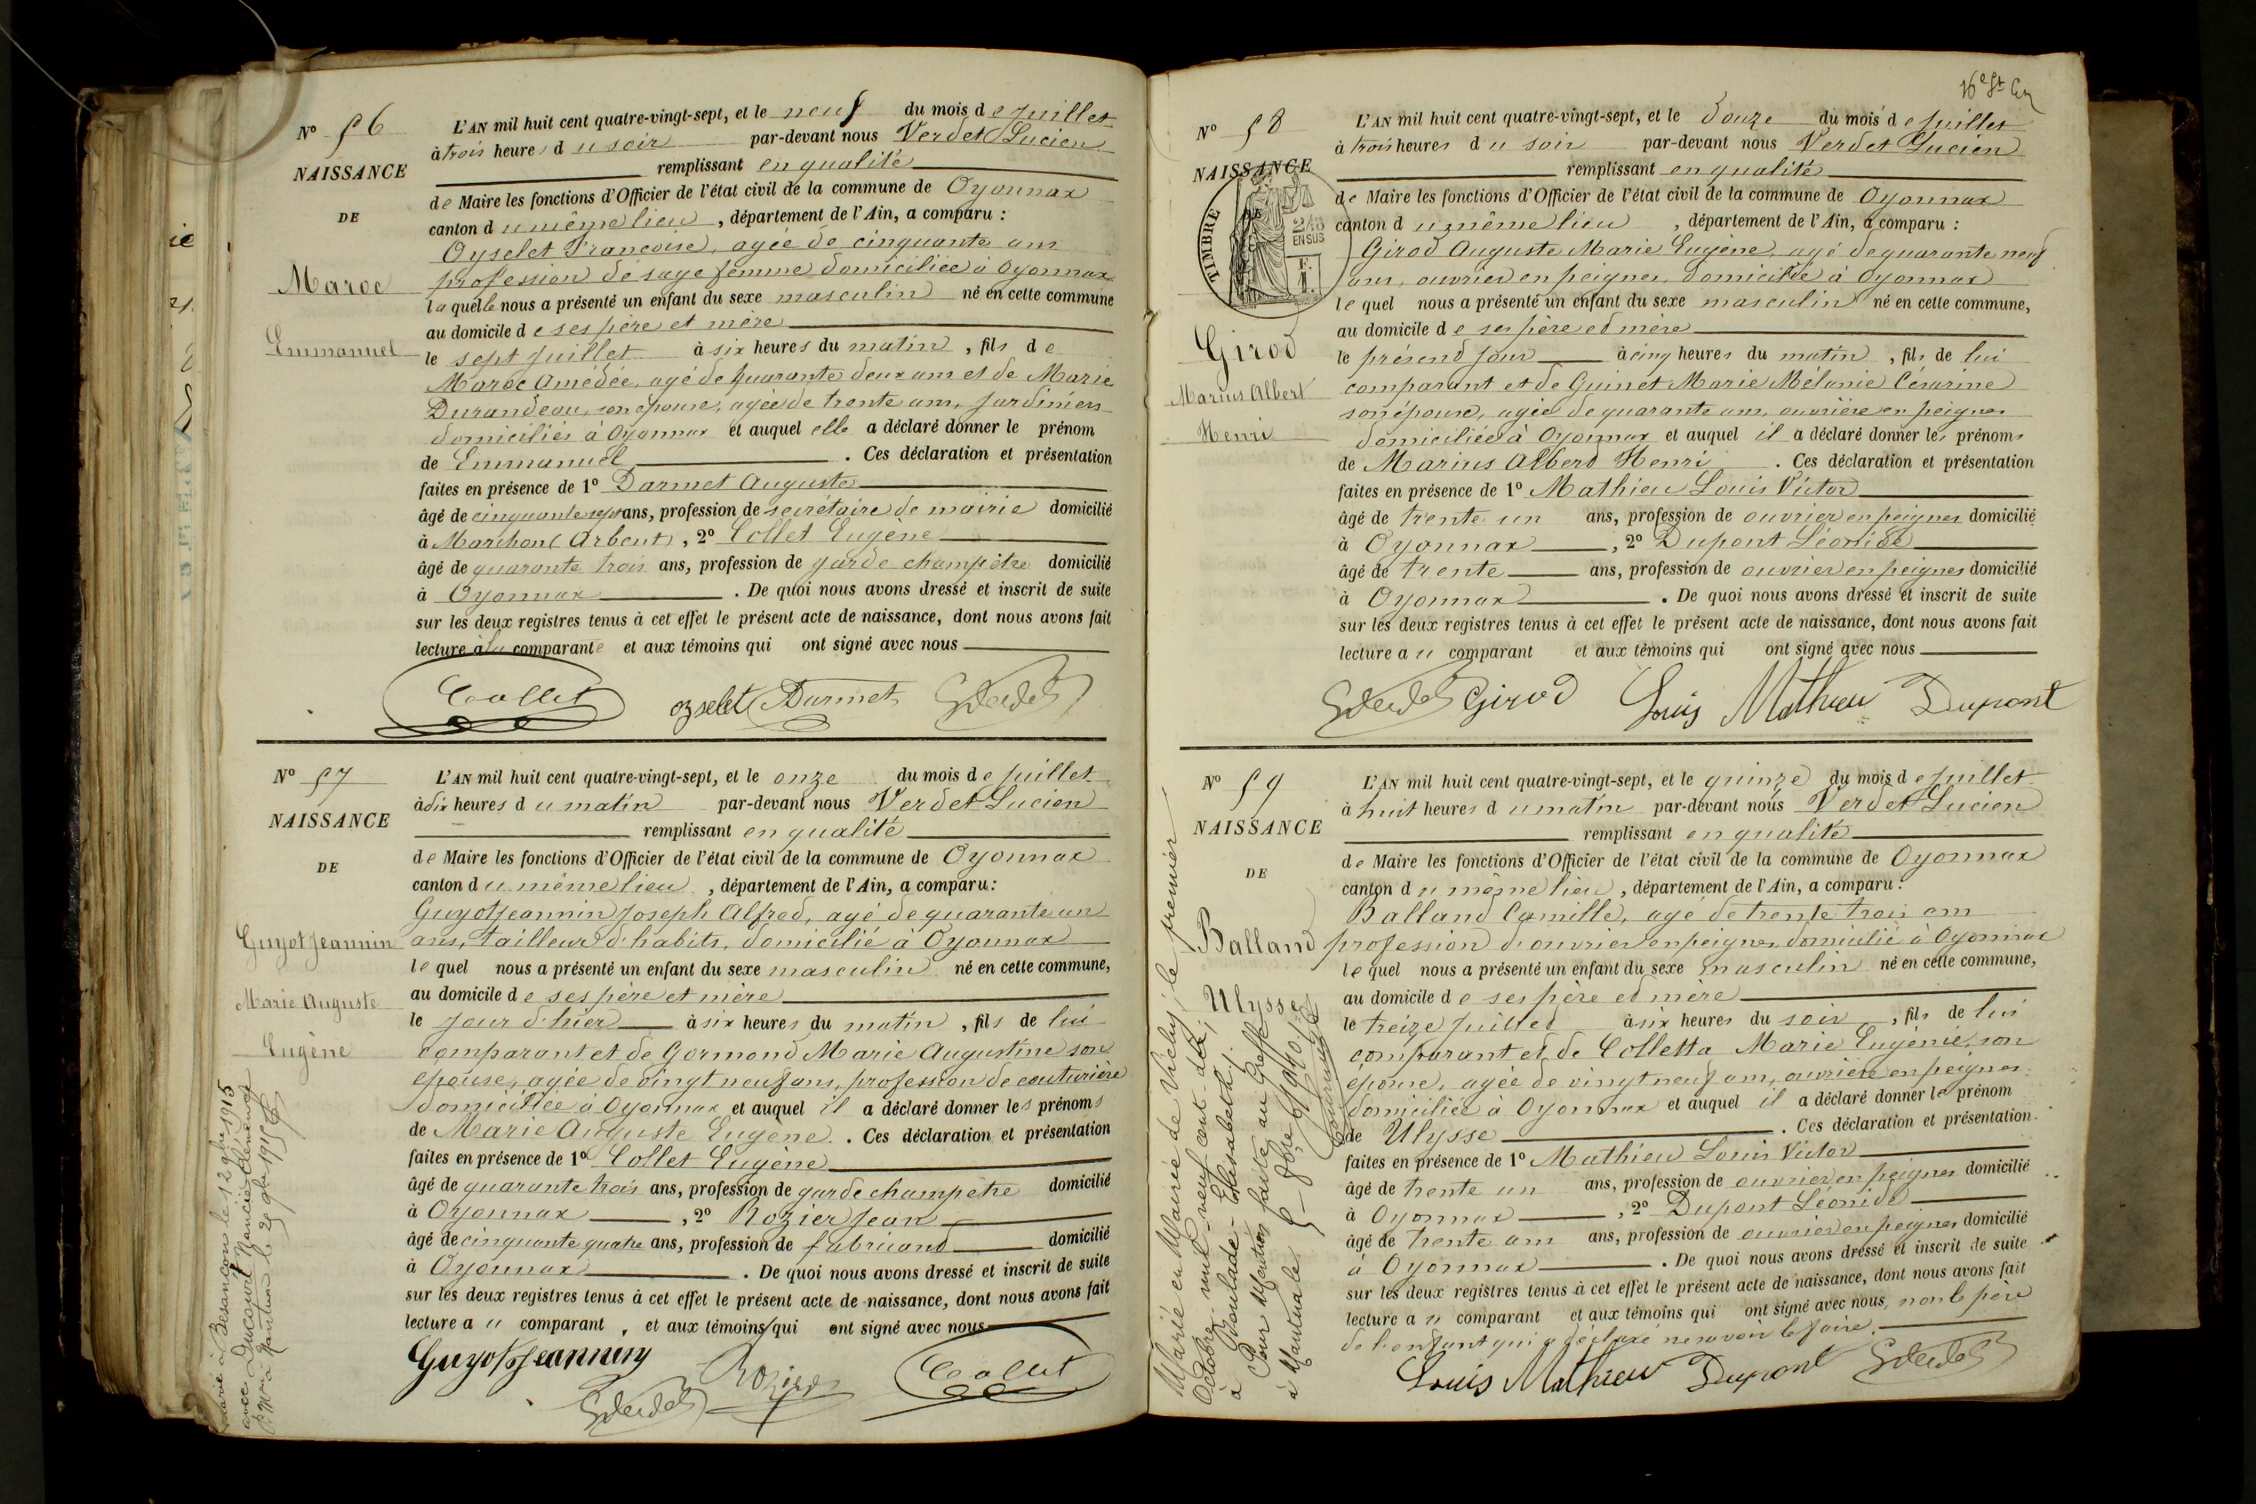 Nº 56
NAISSANCE
DE
Maroc
Emmanuel
L'AN mil huit cent quatre-vingt-sept, et le neuf du mois de Juillet
à trois heures du soir par-devant nous Verdet Lucien
remplissant en qualité
de Maire les fonctions d'Officier de l'état civil de la commune de Oyonnax
canton du même lieu, département de l'Ain, a comparu :
Oyselet Françoise, agée de cinquante ans
profession de sage femme domiciliée à Oyonnax
laquelle nous a présenté un enfant du sexe masculin né en cette commune
au domicile de ses père et mère
le sept Juillet à six heures du matin, fils de
Maroc Amédée, agé de quarante deux ans et de Marie
Durandeau, son épouse, agée de trente ans, Jardiniers
domiciliés à Oyonnax et auquel elle a déclaré donner le prénom
de Emmanuel. Ces déclaration et présentation
faites en présence de 1º Darmet Auguste
âgé de cinquante sept ans, profession de secrétaire de mairie domicilié
à Marchon (Arbent), 2º Collet Eugène
âgé de quarante trois ans, profession de garde champêtre domicilié
à Oyonnax. De quoi nous avons dressé et inscrit de suite
sur les deux registres tenus à cet effet le présent acte de naissance, dont nous avons fait
lecture à la comparante et aux témoins qui ont signé avec nous
Collet oyselet Darmet Verdet
Nº 57
NAISSANCE
DE
Guyot Jeannin
Marie Auguste
Eugène
L'AN mil huit cent quatre-vingt-sept, et le onze du mois de Juillet
à dix heures du matin par-devant nous Verdet Lucien
remplissant en qualité
de Maire les fonctions d'Officier de l'état civil de la commune de Oyonnax
canton du même lieu, département de l'Ain, a comparu :
Guyot Jeannin Joseph Alfred, agé de quarante un
ans, tailleur d'habits, domicilié à Oyonnax
lequel nous a présenté un enfant du sexe masculin né en cette commune,
au domicile de ses père et mère
le jour d'hier à six heures du matin, fils de lui
comparant et de Gormond Marie Augustine son
épouse, agée de vingt neuf ans, profession de couturière
domiciliée à Oyonnax et auquel il a déclaré donner les prénoms
de Marie Auguste Eugène. Ces déclaration et présentation
faites en présence de 1º Collet Eugène
âgé de quarante trois ans, profession de garde champêtre domicilié
à Oyonnax, 2º Rozier Jean
âgé de cinquante quatre ans, profession de fabricant domicilié
à Oyonnax. De quoi nous avons dressé et inscrit de suite
sur les deux registres tenus à cet effet le présent acte de naissance, dont nous avons fait
lecture au comparant, et aux témoins qui ont signé avec nous
Guyot Jeannin Rozier Collet
Verdet
Marié à Besançon le 12 9bre 1915
avec Ducourt Mancie Clémence
16e St
Nº 58
NAISSANCE
DE
TIMBRE
2/10
EN SUS
Girod
Marius Albert
Henri
L'AN mil huit cent quatre-vingt-sept, et le douze du mois de Juillet
à trois heures du soir par-devant nous Verdet Lucien
remplissant en qualité
de Maire les fonctions d'Officier de l'état civil de la commune de Oyonnax
canton du même lieu, département de l'Ain, a comparu :
Girod Auguste Marie Eugène, agé de quarante neuf
ans, ouvrier en peignes, domicilié à Oyonnax
lequel nous a présenté un enfant du sexe masculin né en cette commune,
au domicile de ses père et mère
le présent Jour à cinq heures du matin, fils de lui
comparant et de Guinet Marie Mélanie Césarine
son épouse, agée de quarante ans, ouvrière en peignes
domiciliée à Oyonnax et auquel il a déclaré donner les prénoms
de Marius Albert Henri. Ces déclaration et présentation
faites en présence de 1º Mathieu Louis Victor
âgé de trente un ans, profession de ouvrier en peignes domicilié
à Oyonnax, 2º Dupont Léonide
âgé de trente ans, profession de ouvrier en peignes domicilié
à Oyonnax. De quoi nous avons dressé et inscrit de suite
sur les deux registres tenus à cet effet le présent acte de naissance, dont nous avons fait
lecture au comparant et aux témoins qui ont signé avec nous
Verdet Girod Louis Mathieu Dupont
Nº 59
NAISSANCE
DE
Balland
Ulysse
L'AN mil huit cent quatre-vingt-sept, et le quinze du mois de Juillet
à huit heures du matin par-devant nous Verdet Lucien
remplissant en qualité
de Maire les fonctions d'Officier de l'état civil de la commune de Oyonnax
canton du même lieu, département de l'Ain, a comparu :
Balland Camille, agé de trente trois ans
profession d'ouvrier en peignes domicilié à Oyonnax
lequel nous a présenté un enfant du sexe masculin né en cette commune,
au domicile de ses père et mère
le treize Juillet à six heures du soir, fils de lui
comparant et de Colletta Marie Eugénie, son
épouse, agée de vingt neuf ans, ouvrière en peignes
domiciliée à Oyonnax et auquel il a déclaré donner le prénom
de Ulysse. Ces déclaration et présentation
faites en présence de 1º Mathieu Louis Victor
âgé de trente un ans, profession de ouvrier en peignes domicilié
à Oyonnax, 2º Dupont Léonide
âgé de trente ans ans, profession de ouvrier en peignes domicilié
à Oyonnax. De quoi nous avons dressé et inscrit de suite
sur les deux registres tenus à cet effet le présent acte de naissance, dont nous avons fait
lecture au comparant et aux témoins qui ont signé avec nous, non le père
de l'enfant qui a déclaré ne savoir le faire.
Louis Mathieu Dupont Verdet
Marié en Mairie de Vichy, le premier
Octobre mil neuf cent dix,
à Boulade Elisabeth.
Pour Mention faite au Greffe
à Nantua le 5 8bre 1910